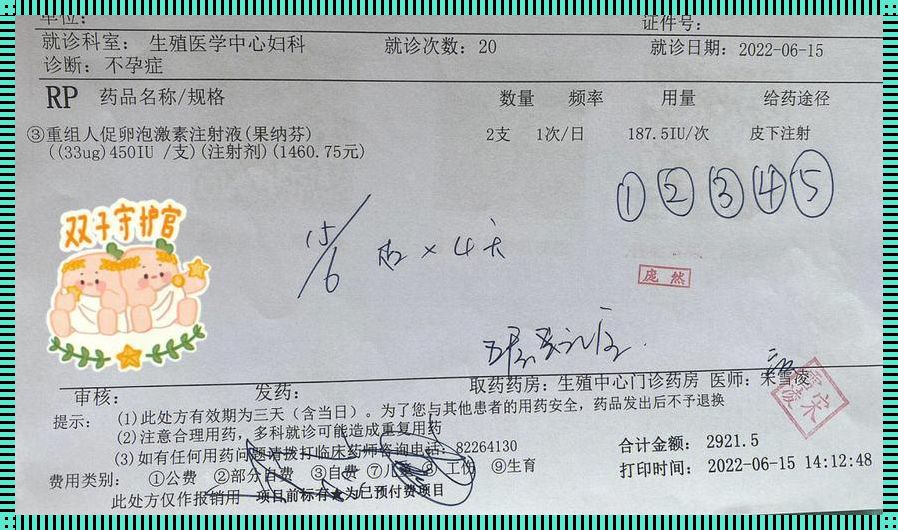 单位：
证件号：
就诊科室： 生殖医学中心妇科 就诊次数：20 就诊日期：2022-06-15
诊断： 不孕症
RP 药品名称/规格 数量 频率 用量 给药途径
③重组人促卵泡激素注射液(果纳芬) 2支 1次/日 187.5IU/次 皮下注射
((33ug)450IU /支)(注射剂)(1460.75元)
① ② ③ ④ ⑤
双子守护官
15/6 × 4天
庞 然
审核： 发药： 取药药房：生殖中心门诊药房 医师：宋雪凌
提示： (1)此处方有效期为三天（含当日）。为了您与其他患者的用药安全，药品发出后不予退换
(2)注意合理用药，多科就诊可能造成重复用药
(3)如有任何用药问题请拨打临床药师咨询电话：82264130
合计金额： 2921.5
费用类别： ①公费 ②部分自费 ③自费 ⑦儿 ⑧ 工伤 ⑨生育
打印时间： 2022-06-15 14:12:48
此处方仅作报销用 项目前标有★为已预付费项目